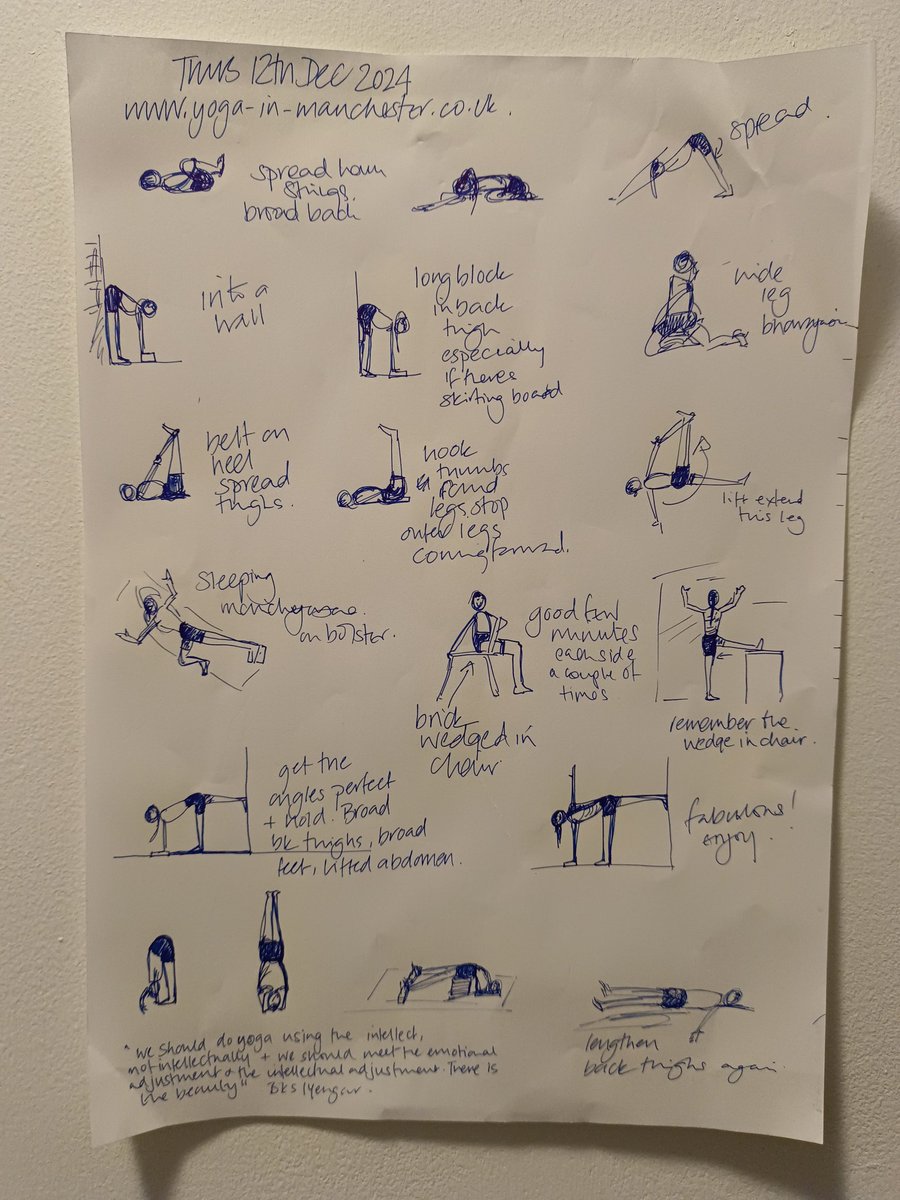 Thurs 12th Dec 2024
www.yoga-in-manchester.co.uk.
spread ham
strings.
broad back
spread.
into a
wall
long block
in back
thigh
especially
if theres
skirting board
wide
leg
belt on
heel
spread
thighs.
hook
thumbs
round
legs. stop
outer legs
coming forward.
lift extend
this leg
Sleeping
on bolster.
good few
minutes
each side
a couple of
times
brick
wedged in
chair.
remember the
wedge in chair.
get the
angles perfect
+ hold. Broad
bk thighs, broad
feet, lifted abdomen.
fabulous!
enjoy.
"we should do yoga using the intellect,
not intellectually + we should meet the emotional
adjustment & the intellectual adjustment. There is
the beauty" BKS Iyengar.
lengthen
back thighs again.